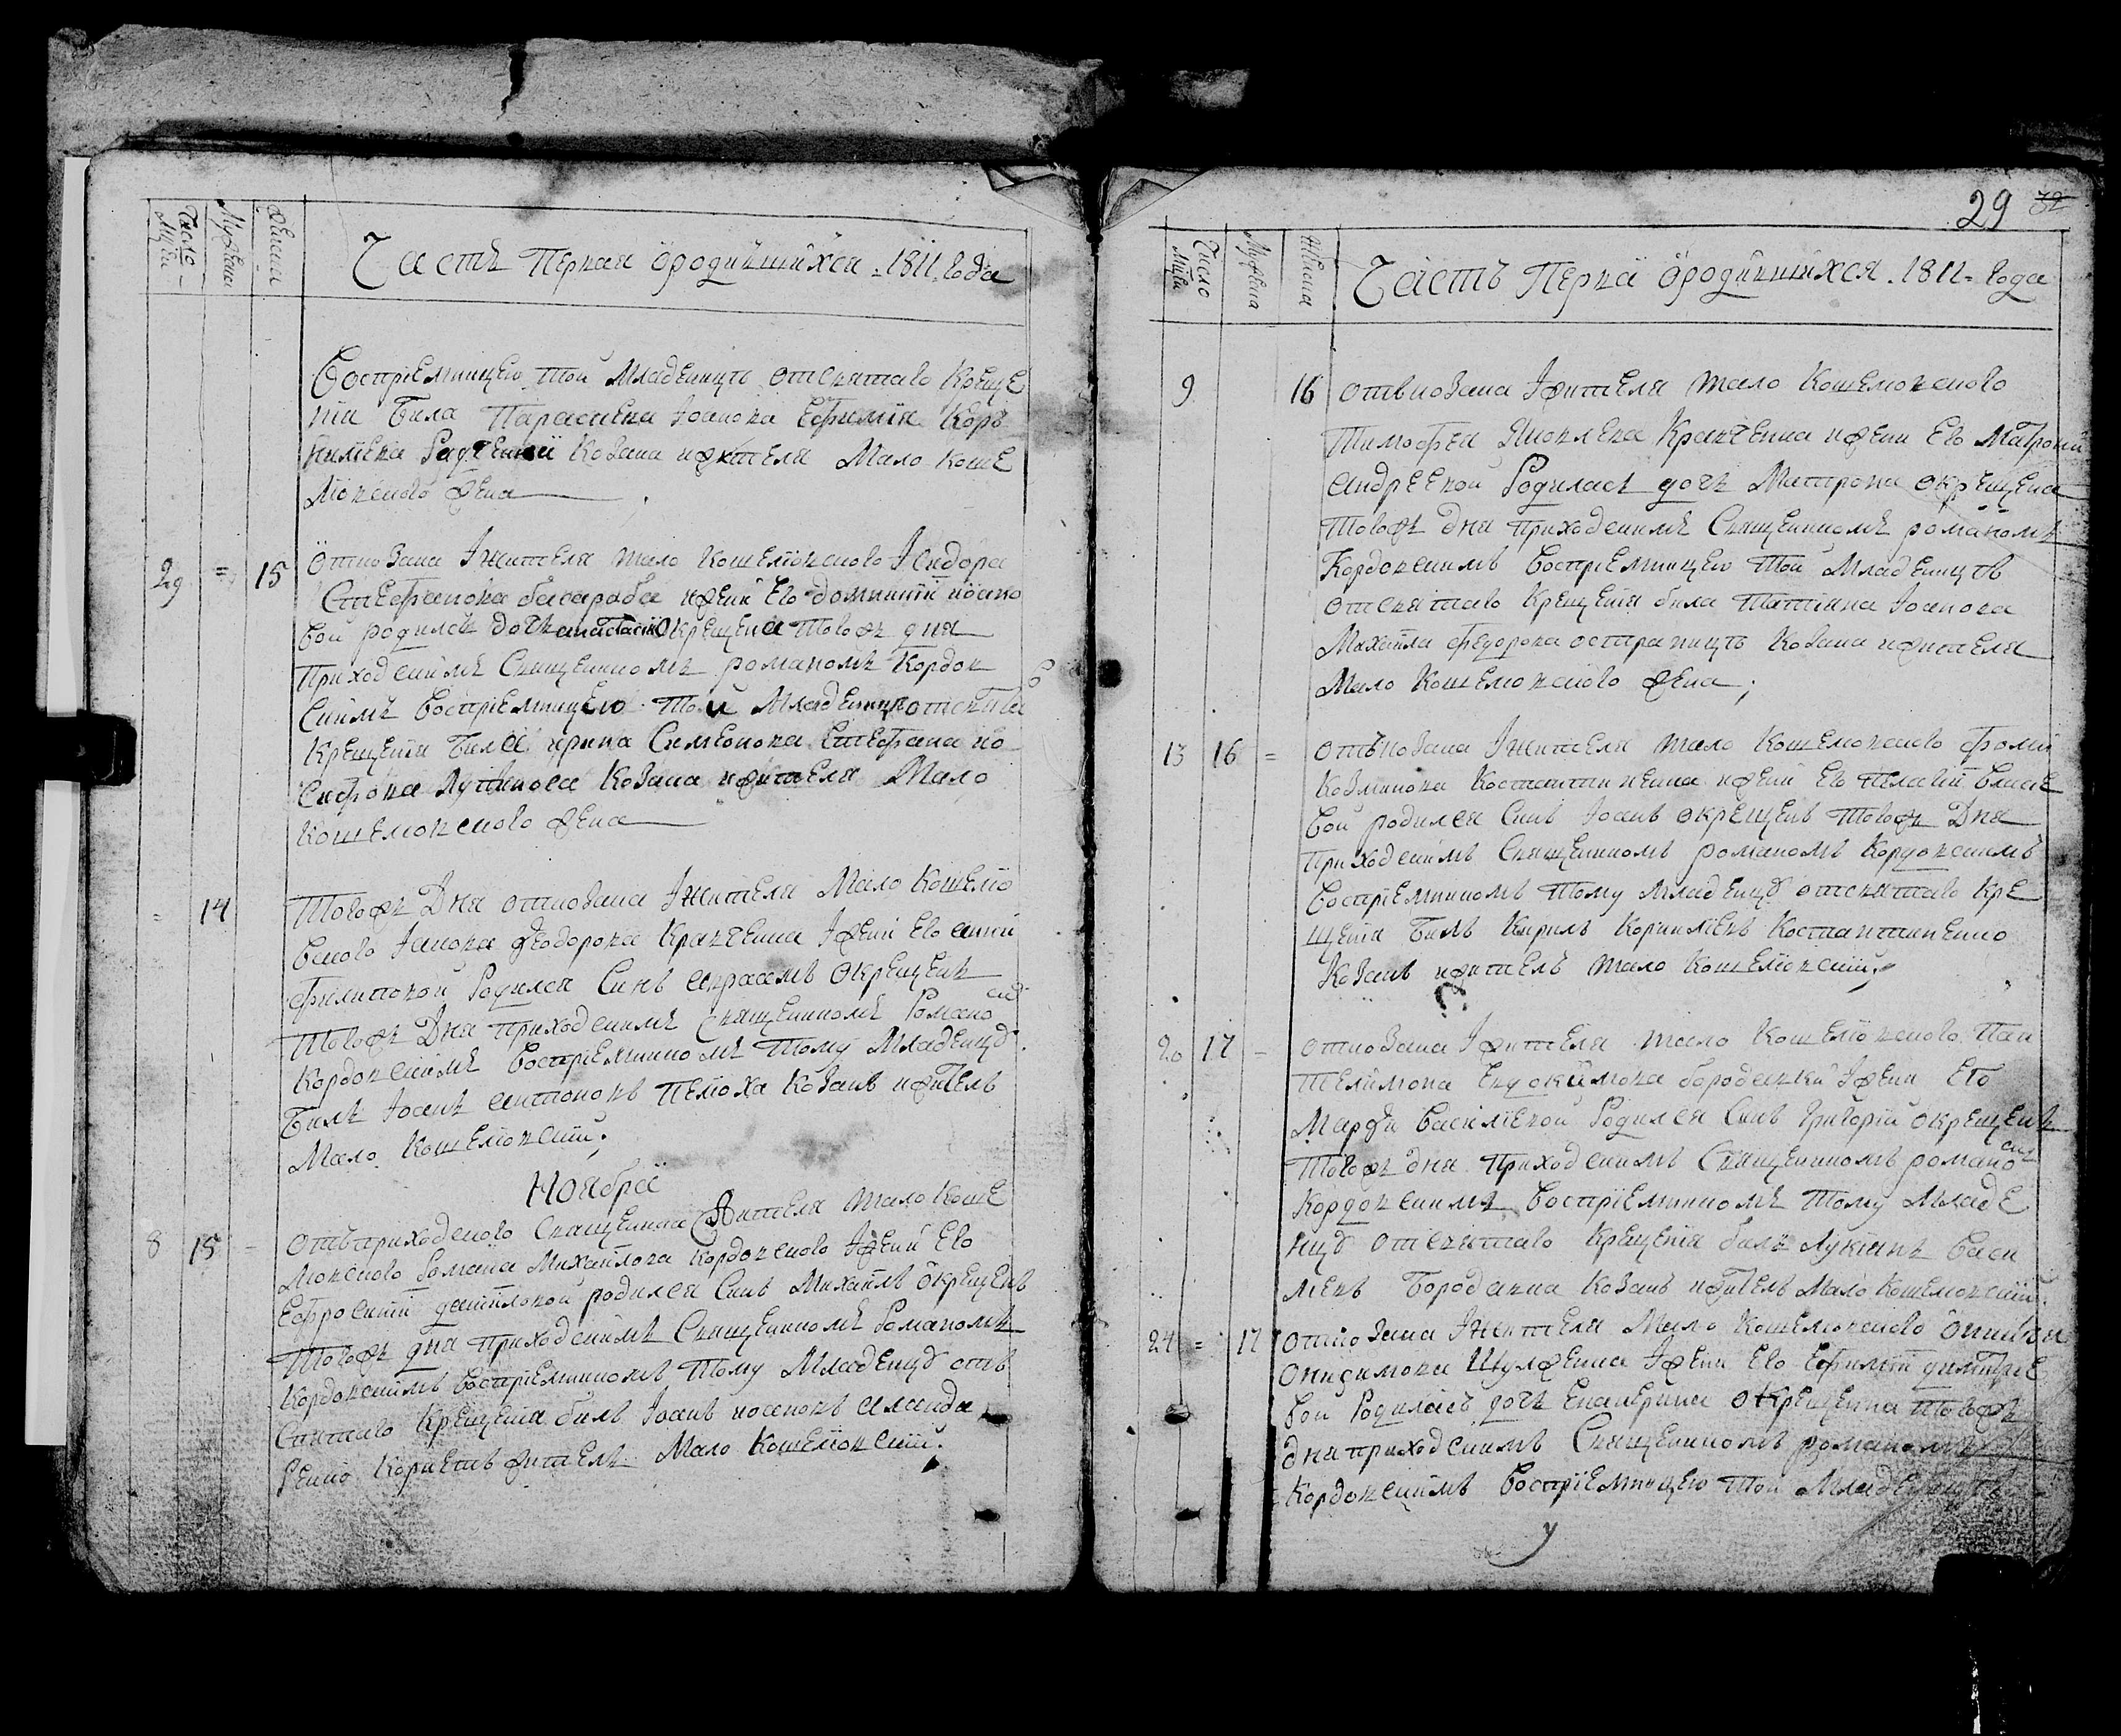 Число мцей
Мужеска
Женска
Часть Первая ородившихся 1811. Года
Восприемницею той младенцъ отсвятаго Креще
нія била Параскева Іоанова Ефимія Кор
нилиева Козака ижителя Мало Коше
ліовского жена
29 = 15 Откозака Іжителя мало кошеліовского Ісидора
Стефанова басараба ижени Его домникіи
вой родилсь дочь анастасія окрещена тогожъ дня
Приходскимъ Священникомъ романомъ Кордов
скимъ восприемницею той младенцъ отсвята
Крещенія била ирина Симеонова Стефана ио
сифова Козака ижителя Мало
Кошеліовского жена
= 14 Тогожъ Дня откозака Іжителя Мало Кошеліо
вского Іакова Феодорова Кравченка Іжени Его анни
Филиповой Родился Синъ окрещенъ
Тогожъ Дня приходскимъ Священникомъ Романо
Кордовскимъ восприемникомъ тому младенцу
билъ Іоанъ антоновъ Пеліоха Козакъ ижитель
Мало Кошеліовскій.
Ноября
8 15 - Отъприходского Священника Жителя мало Коше
люнского Романа Михаилова Кордовского Іжени Его
Ефросиніи даниловой родился Синъ Михаилъ окрещенъ
Тогожъ дня приходскимъ Священникомъ Романомъ
Кордовскимъ восприемникомъ тому младенцу отъ
Святаго Крещенія билъ Іоанъ
жителъ Мало Кошеліовскій.
29 32
Число мцей
Мужеска
Женска
Часть Перва ородившихся. 1811 = Года
9 16 отъкозака Іжителя мало Кошеловского
Тимофея Яковлева Кравченка ижени Его Матрони
андреевой Родиласъ дочъ Матрона окрещена
Тогожъ дня приходскимъ Священникомъ романомъ
Кордовскимъ Восприемницею той младенцъ
отсвятаго Крещенія била Татіана Іоанова
Михаила федорова Козака ижителя
Мало Кошеловского жена;
13 16 = отъкозака Іжителя мало Кошеловского Фоми
Козминова Костантиненка ижени Его Пелагіи власе
вой родился Синъ Іоанъ окрещенъ тогожъ Дня
Приходскимъ Священникомъ романомъ Кордовскимъ
восприемникомъ тому младенцу отсвятаго Кре
щенія билъ Кирилъ Корнилиевъ Костантиненко
Козакъ ижителъ мало Кошеліовскій.
20 17 - откозака Іжителя мало Кошеліовского Пан
телимона Евдокимова бородавки Іжени Его
Марфи Василіевой Родился Синъ Григорій окрещенъ
Тогожъ дня приходскимъ Священникомъ романо
Кордовскимъ восприемникомъ тому младе
нцу отсвятаго Крещенія билъ Лукіанъ Васи
ліевъ Бородавка Козакъ ижителъ Мало Кошеловскій.
24 = 17 откозака Іжителя Мало Кошеловского
Онисимова Шулженка Іжени Его Ефиміи димитрие
вои Родиласъ дочъ Екатерина окрещенна тогожъ
дня приходскимъ Священникомъ романомъ
Кордовскимъ Восприемницею той младенцъ